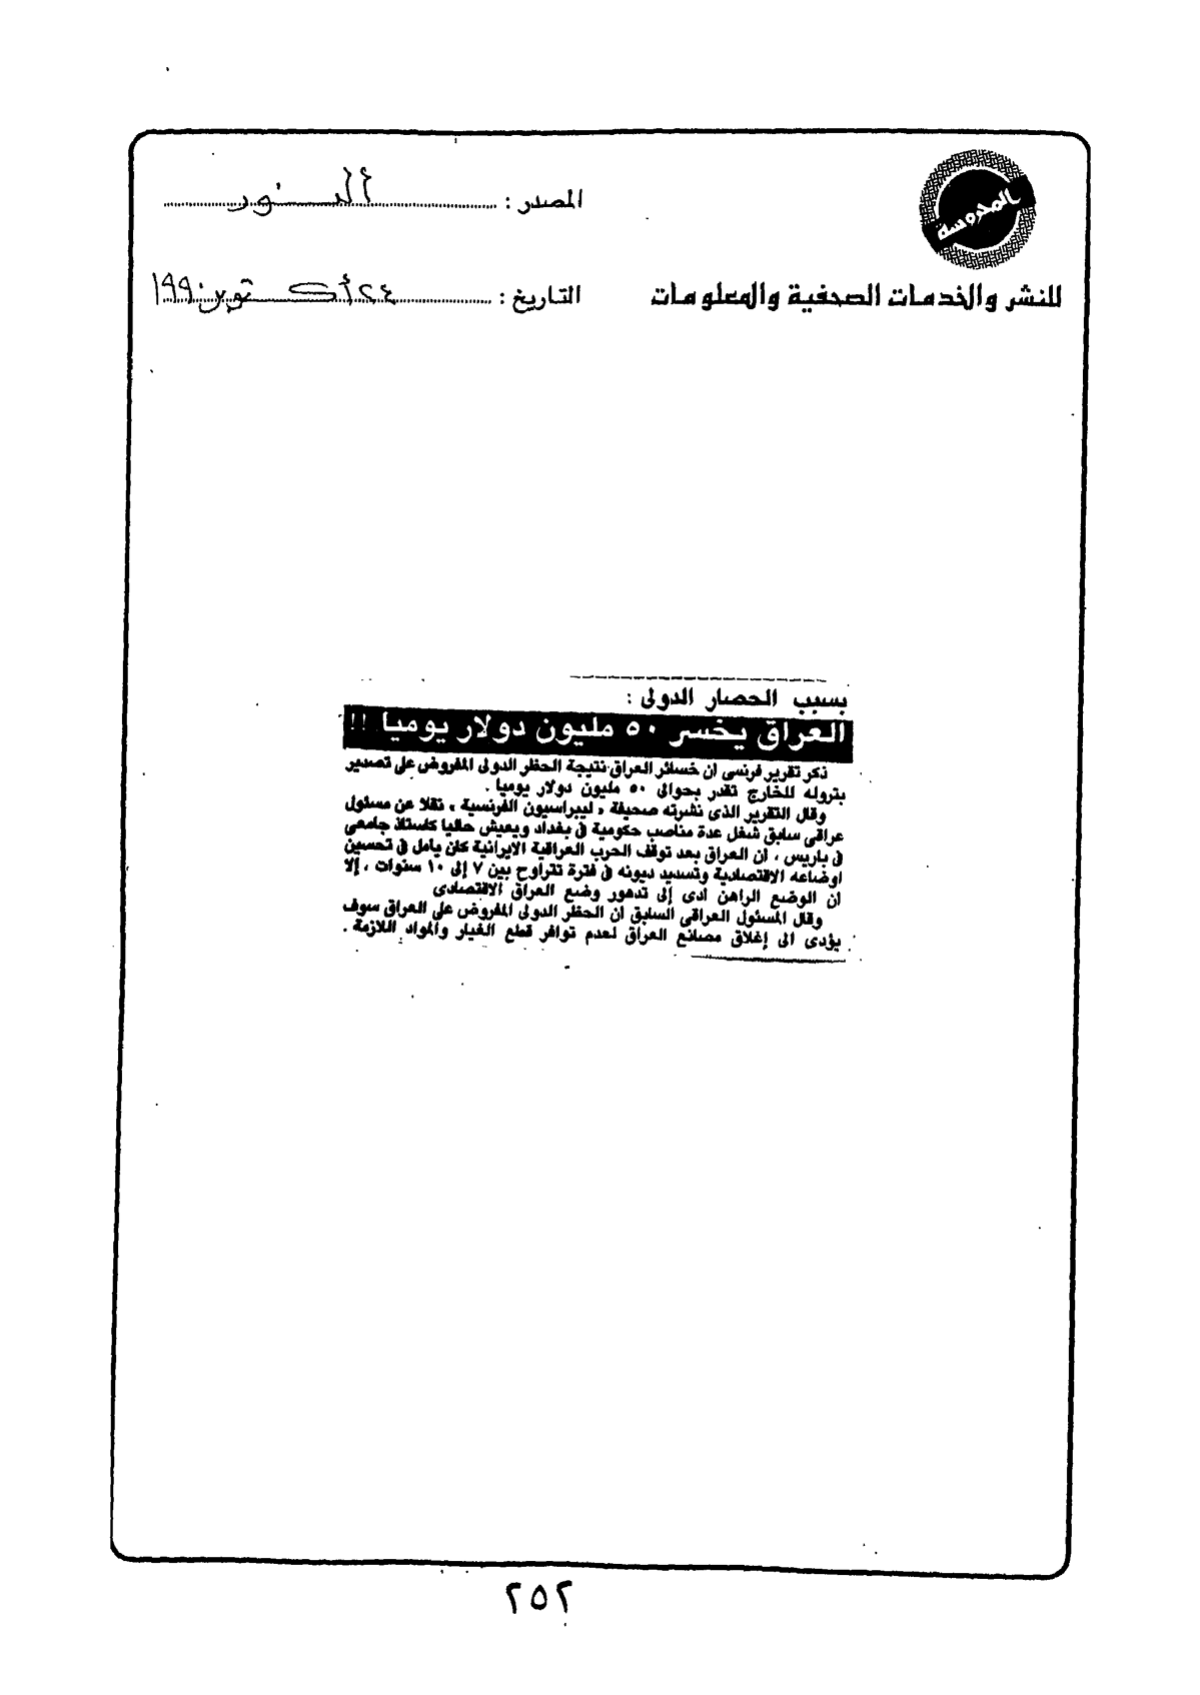 المحروسة
للنشر والخدمات الصحفية والمعلومات
المصدر : النور
التاريخ : ٢٤ أكتوبر ١٩٩٠
بسبب الحصار الدولى :
العراق يخسر ٥٠ مليون دولار يوميا !!
ذكر تقرير فرنسى ان خسائر العراق نتيجة الحظر الدولى المفروض على تصدير
بتروله للخارج تقدر بحوالى ٥٠ مليون دولار يوميا .
وقال التقرير الذى نشرته صحيفة « ليبراسيون الفرنسية » نقلا عن مسئول
عراقى سابق شغل عدة مناصب حكومية فى بغداد ويعيش حاليا كاستاذ جامعى
فى باريس ، ان العراق بعد توقف الحرب العراقية الايرانية كان يامل فى تحسين
اوضاعه الاقتصادية وتسديد ديونه فى فترة تتراوح بين ٧ إلى ١٠ سنوات ، إلا
ان الوضع الراهن ادى إلى تدهور وضع العراق الاقتصادى
وقال المسئول العراقى السابق ان الحظر الدولى المفروض على العراق سوف
يؤدى الى إغلاق مصانع العراق لعدم توافر قطع الغيار والمواد اللازمة .
٢٥٢